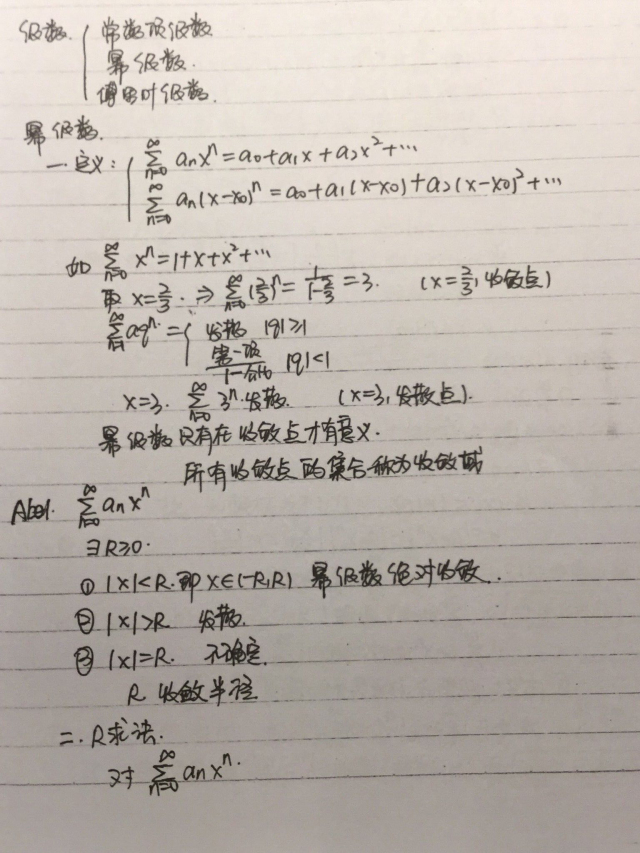 级数 { 常数项级数
幂级数.
傅里叶级数.
幂级数.
一.定义: { ∑_{n=0}^{∞} aₙxⁿ = a₀+a₁x+a₂x²+⋯
∑_{n=0}^{∞} aₙ(x-x₀)ⁿ = a₀+a₁(x-x₀)+a₂(x-x₀)²+⋯
如 ∑_{n=0}^{∞} xⁿ=1+x+x²+⋯
取 x=2/3. ⇒ ∑_{n=0}^{∞} (2/3)ⁿ = 1/(1-2/3) = 3. (x=2/3, 收敛点)
∑_{n=1}^{∞} aqⁿ = { 发散 |q|≥1
第一项/(1-公比) |q|<1
x=3. ∑_{n=0}^{∞} 3ⁿ.发散. (x=3,发散点).
幂级数只有在收敛点才有意义.
所有收敛点的集合称为收敛域
Abel. ∑_{n=0}^{∞} aₙxⁿ
∃R≥0.
① |x|<R.即 x∈(-R,R) 幂级数绝对收敛.
② |x|>R 发散.
③ |x|=R. 不确定.
R 收敛半径
二. R求法.
对 ∑_{n=0}^{∞} aₙxⁿ.